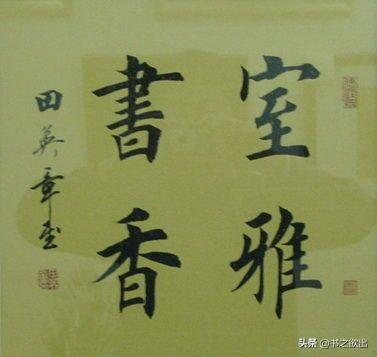 室雅
書香
田英章書
头条 @书之欲出